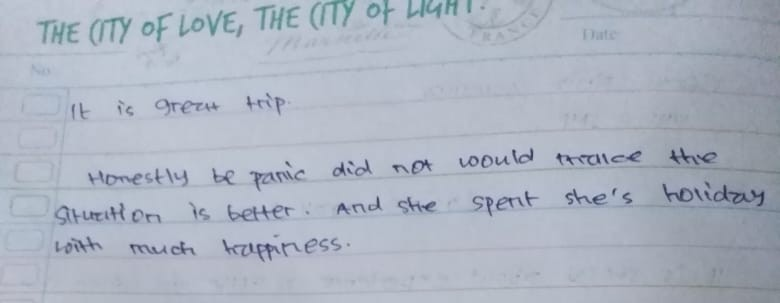 THE CITY OF LOVE, THE CITY OF LIGHT.
FRANCE
Date
No
It is great trip.
Honestly be panic did not would make the
situation is better. And she spent she's holiday
with much happiness.